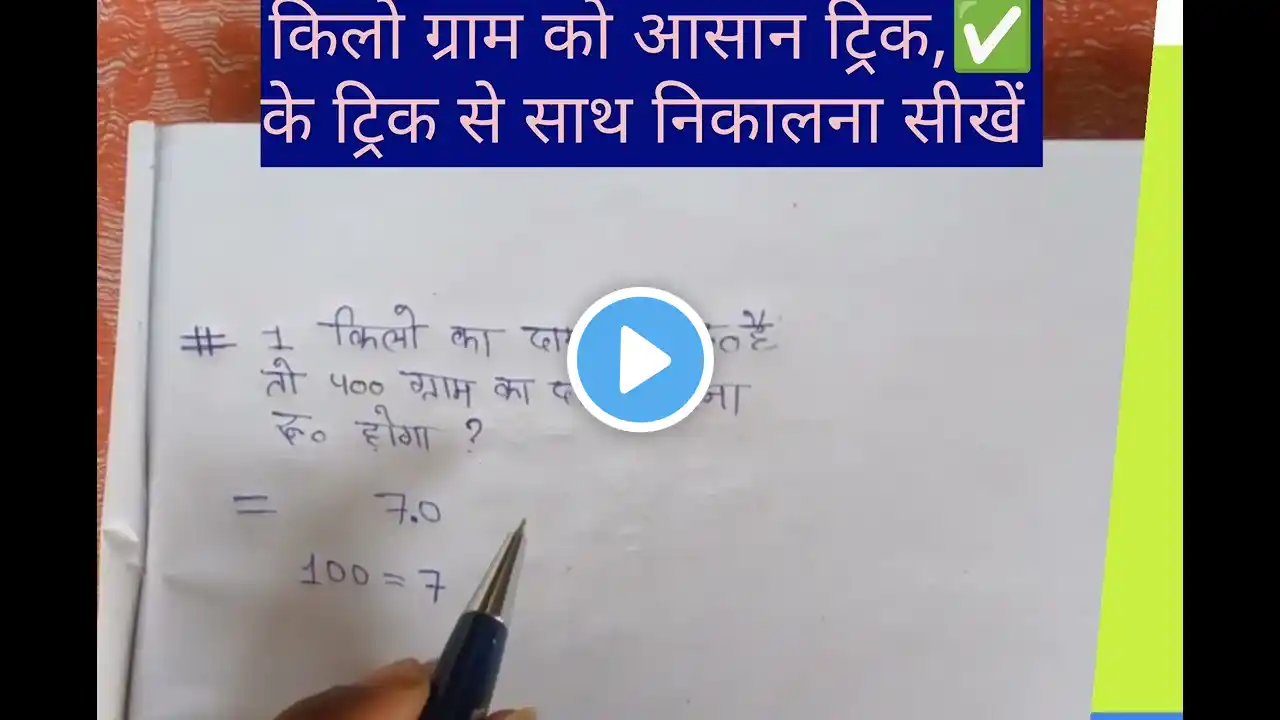 किलो ग्राम को आसान ट्रिक,✅
के ट्रिक से साथ निकालना सीखें
# 1 किलो का रु० है
तो ५०० ग्राम का
रु० होगा ?
= 7.0
100 = 7